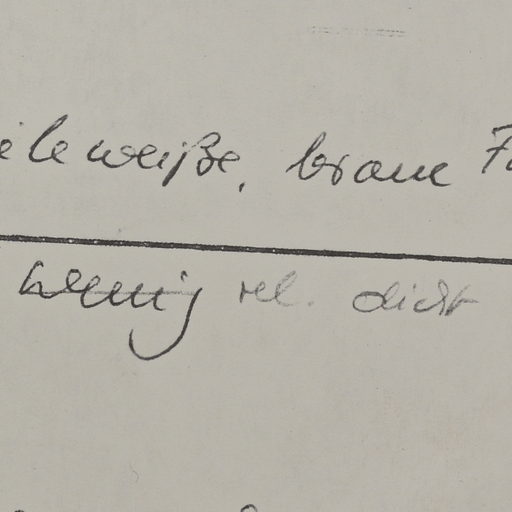 viele weiße, braune
wenig rel. dicht